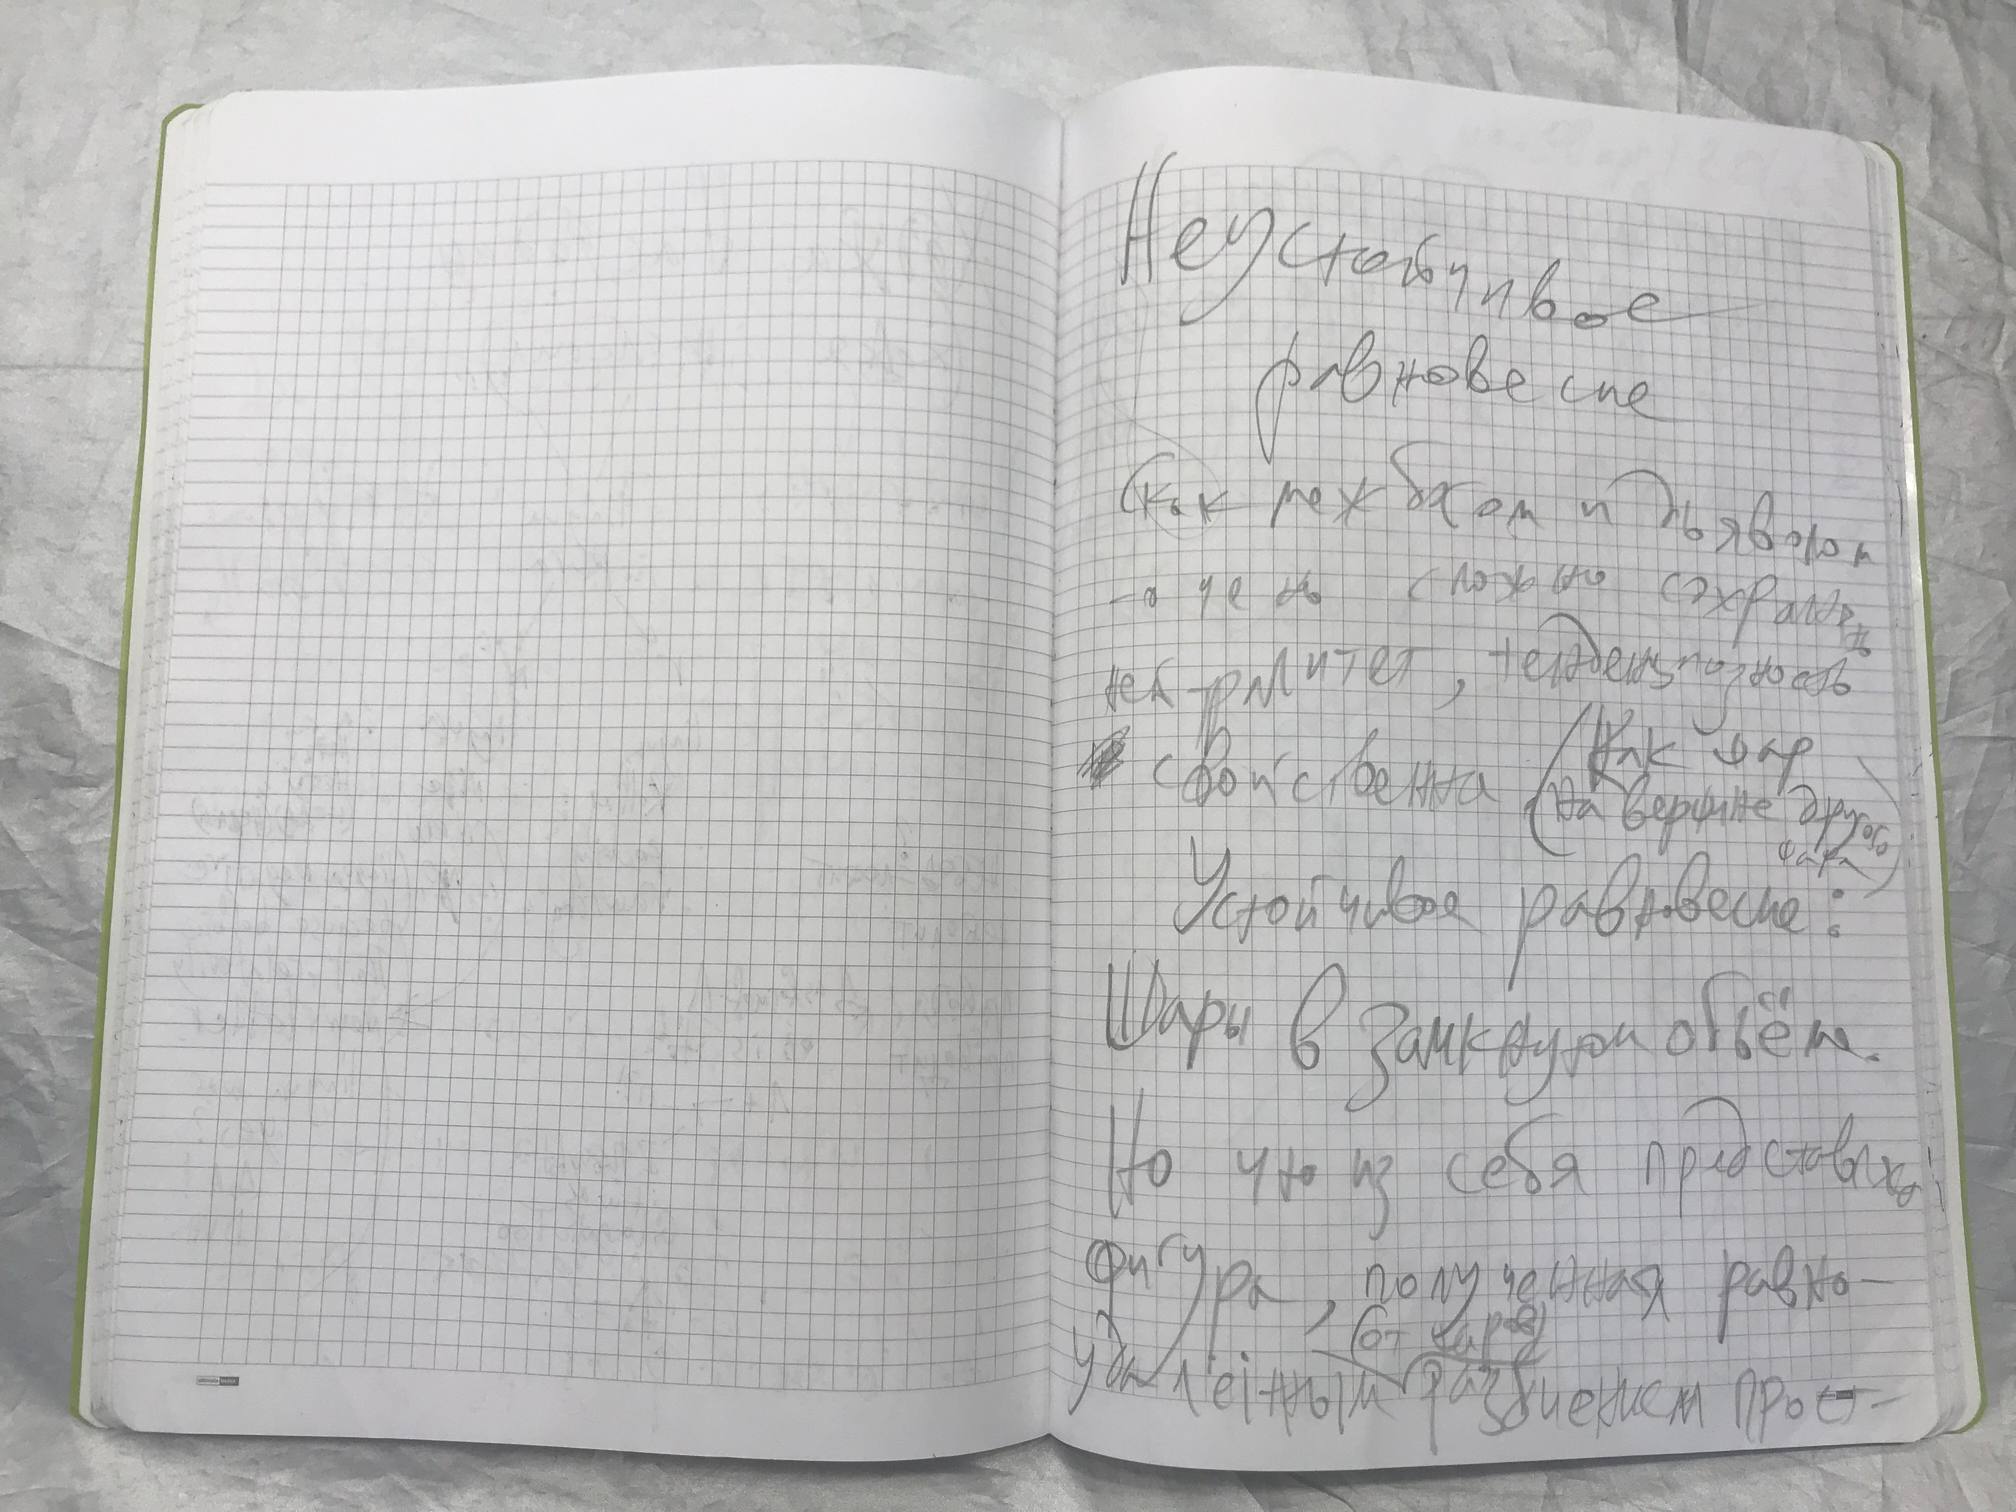 Неустойчивое
равновесие
(как меж богом и дьяволом
- очень сложно сохранять
нейтралитет, тенденциозность
свойственна (как шар
на вершине другого
шара)
Устойчивое равновесие:
Шары в замкнутом объёме.
Но что из себя представляет
фигура, полученная равно-
(от шаров)
удалённым разбиением прост-